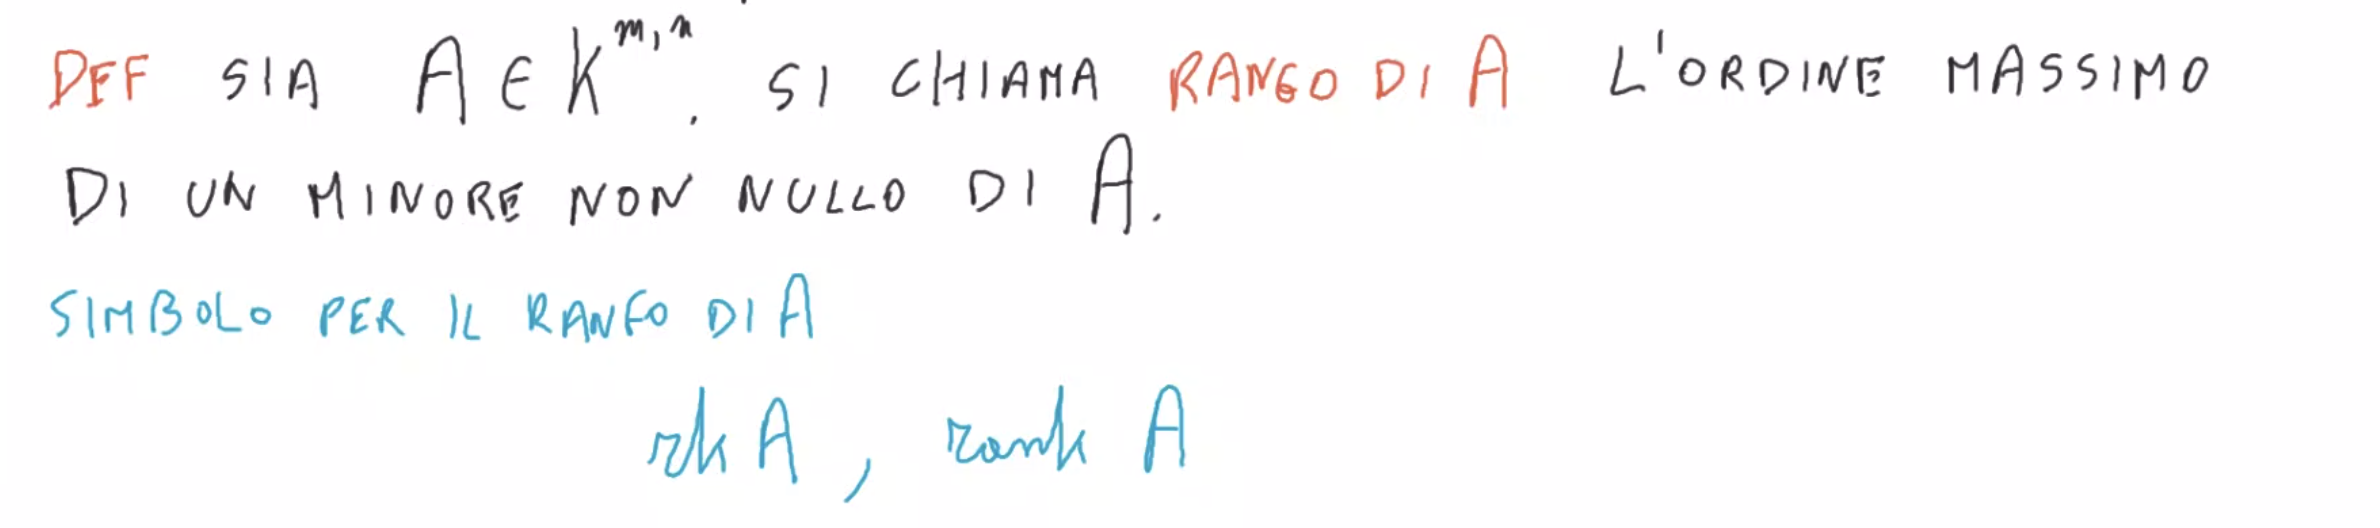 DEF SIA A ∈ K^{m,n}. SI CHIAMA RANGO DI A L'ORDINE MASSIMO
DI UN MINORE NON NULLO DI A.
SIMBOLO PER IL RANGO DI A
rk A, rank A